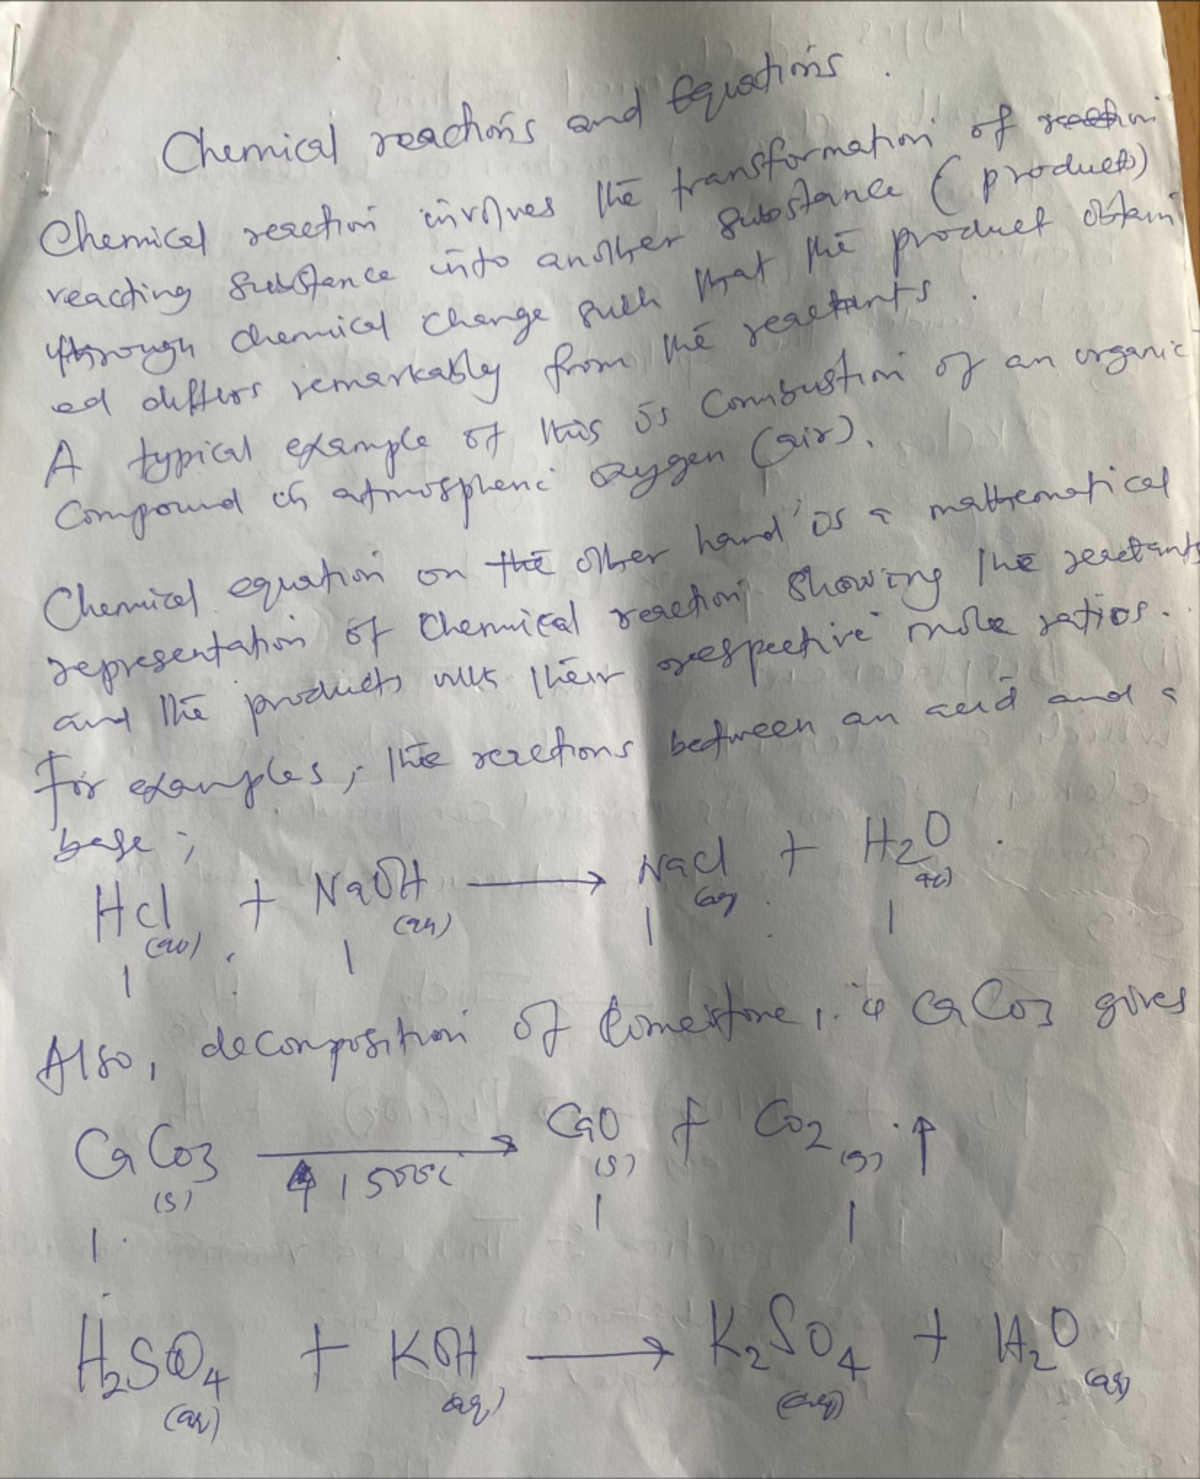 Chemical reactions and Equations.
Chemical reaction involves the transformation of reaction
reacting substance into another substance (products)
through chemical change such that the product obtain
ed differs remarkably from the reactants.
A typical example of this is Combustion of an organic
Compound in atmospheric oxygen (air).
Chemical equation on the other hand is a mathematical
representation of Chemical reaction showing the reactants
and the products with their respective mole ratios.
For examples, the reactions between an acid and a
base;
HCl(aq) + NaOH(aq) → NaCl(aq) + H2O(aq).
1 1 1 1
Also, decomposition of limestone, ie CaCO3 gives
CaCO3(s) → CaO(s) + CO2(g) ↑
1500c
1 1 1
H2SO4(aq) + KOH(aq) → K2SO4(aq) + H2O(aq)